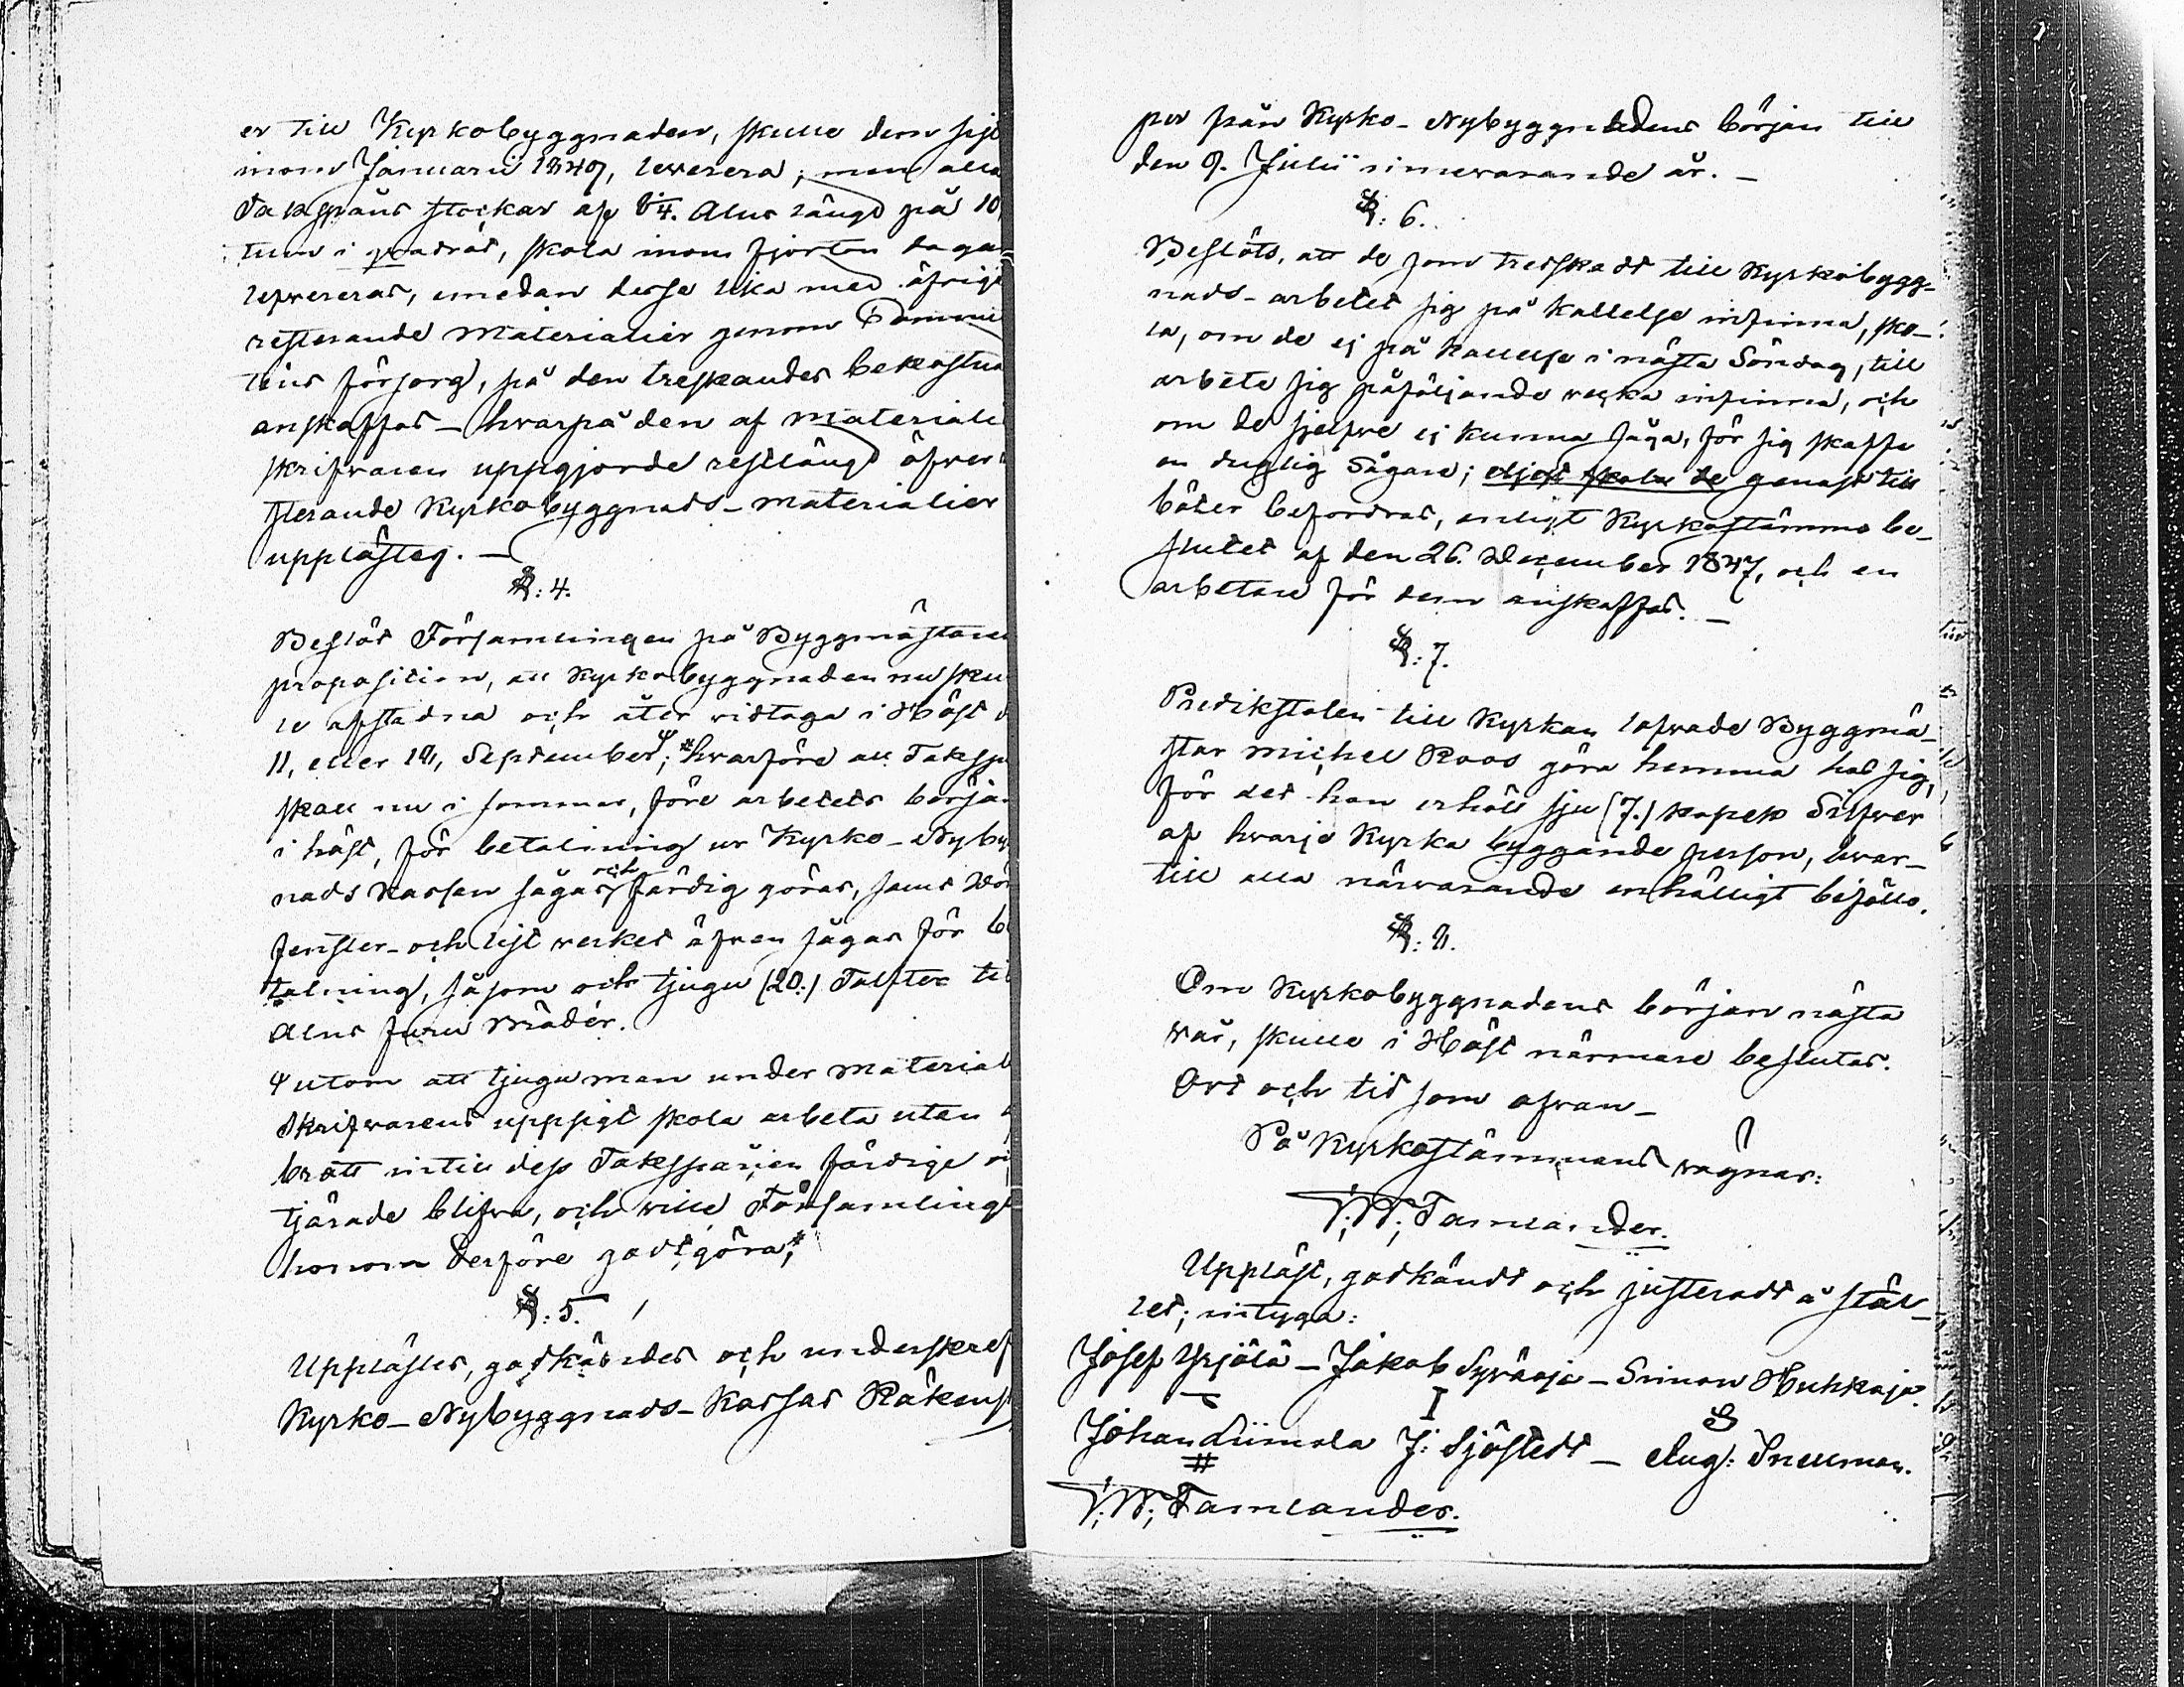 er till Kyrkobyggnaden, skulle dem sist
inom Januarii 1849, leverera; men alla
Takspåns stockar af 6¼. Alns längd på 10
tum i qvadrat, skola inom fjorton daga
levereras, emedan desse lika med öfrigt
resterande Materialier genom
tens försorg, på den treskandes bekostna
anskaffas – hvarpå den af Materiali
skrifvaren uppgjorde restlängd öfver
sterande Kyrkobyggnads-materialier
upplästes. –
§: 4.
Beslöt Församlingen på Byggmästaren
proposition, att Kyrkobyggnaden nu skul
le afstadna och åter vidtaga i Höst d
11, eller September; hvarföre all Takspå
skall nu i sommar, före arbetets börja
i höst, för betalning ur Kyrko-Nyby
nads Kassan sågas och färdig göras, samt
fenster- och list verket äfven sågas för be
talning, såsom och tjugu (20:) Tolfter ti
Alns furu Bräder.
utom att tjugu man under Material
Skrifvarens uppsigt skola arbeta utan
bratt intill dess Taksspånen färdige
tjärade blifva, och ville Församlingen
honom derföre godtgöra,
§: 5.
Upplästes, godkändes och underskref
Kyrko-Nybyggnads-Kassas Räkensk
per från Kyrko-Nybyggnadens början till
den 9. Julii innevarande år. –
§: 6.
Beslöts, att de som tredskadt till Kyrkobygg-
nads-arbetet sig på kallelse infinna, sko-
la, om de ej på kallelse i nästa Söndag, till
arbete sig påföljande vecka infinna, och
om de sjelfve ej kunna såga, för sig skaffa
en duglig Sågare; eljest skola de genast till
böter befordras, enligt Kyrkostämmo be-
slutet af den 26. December 1847, och en
arbetare för dem anskaffas. –
§: 7.
Predikstolen till Kyrkan lofvade Byggmä-
star Michel Roos göra hemma hos sig,
för det han erhåll sju (7.) kopek Silfver
af hvarje Kyrka byggande person, hvar-
till alla närvarande enhälligt biföllo.
§: 8.
Om Kyrkobyggnadens början nästa
vår, skulle i Höst närmare beslutas.
Ort och tid som ofvan –
På Kyrkostämmans vägnar:
Tamlander.
Uppläst, godkändt och justeradt å stäl-
let; intyga:
Josef Yrjölä – Jakob Syväoja – Simon Huhkaja.
I
Johan Liimola J: Sjöstedt – Aug: Snellman.
Tamlander.